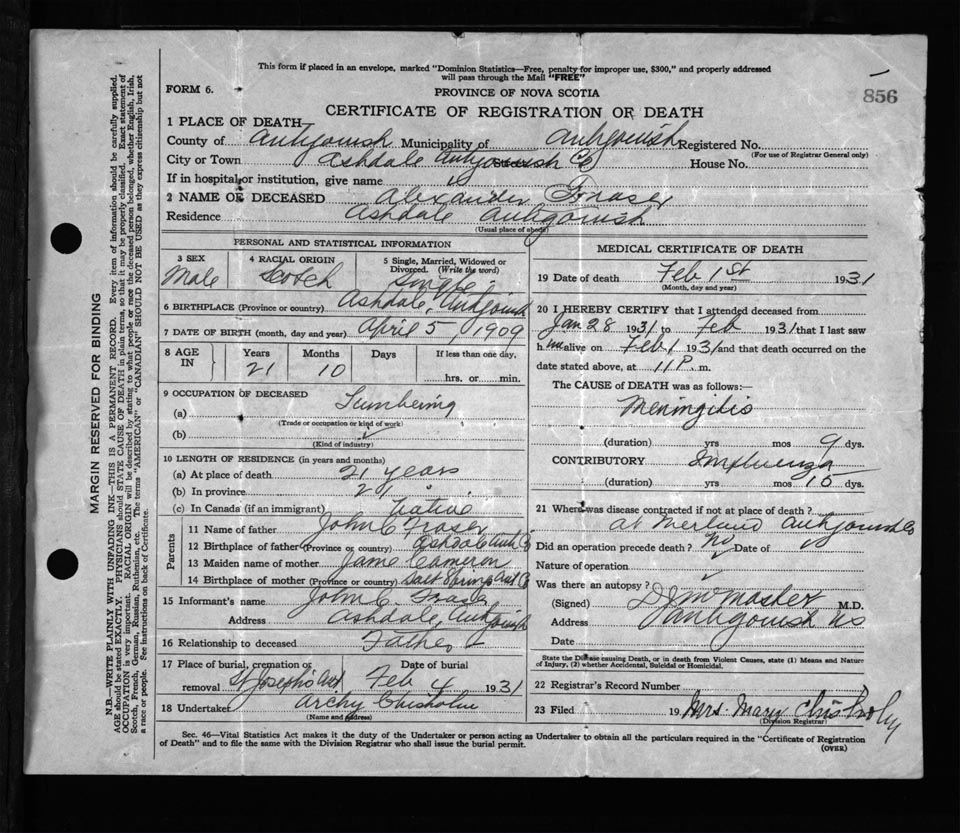 This form if placed in an envelope, marked "Dominion Statistics—Free, penalty for improper use, $300," and properly addressed
will pass through the Mail "FREE"
FORM 6.
PROVINCE OF NOVA SCOTIA
856
CERTIFICATE OF REGISTRATION OF DEATH
1 PLACE OF DEATH
County of Antigonish Municipality of Antigonish Registered No.
(For use of Registrar General only)
City or Town Ashdale Antigonish Co House No.
If in hospital or institution, give name
2 NAME OF DECEASED Alexander Fraser
Residence Ashdale Antigonish
(Usual place of abode)
PERSONAL AND STATISTICAL INFORMATION
3 SEX Male
4 RACIAL ORIGIN Scotch
5 Single, Married, Widowed or Divorced. (Write the word) Single
6 BIRTHPLACE (Province or country) Ashdale, Antigonish
7 DATE OF BIRTH (month, day and year) April 5, 1909
8 AGE IN Years 21 Months 10 Days If less than one day, hrs. or min.
9 OCCUPATION OF DECEASED
(a) Lumbering
(Trade or occupation or kind of work)
(b)
(Kind of industry)
10 LENGTH OF RESIDENCE (in years and months)
(a) At place of death 21 years
(b) In province 21 "
(c) In Canada (if an immigrant) Native
Parents
11 Name of father John C Fraser
12 Birthplace of father (Province or country) Ashdale Ant Co
13 Maiden name of mother Jane Cameron
14 Birthplace of mother (Province or country) Salt Springs Ant Co
15 Informant's name John C. Fraser
Address Ashdale, Antigonish
16 Relationship to deceased Father
17 Place of burial, cremation or removal St Josephs Ant
Date of burial Feb 4 1931
18 Undertaker Archy Chisholm
(Name and address)
MEDICAL CERTIFICATE OF DEATH
19 Date of death Feb 1st 1931
(Month, day and year)
20 I HEREBY CERTIFY that I attended deceased from
Jan 28 1931 to Feb 1931 that I last saw
him alive on Feb 1 1931 and that death occurred on the
date stated above, at 11 P. m.
The CAUSE OF DEATH was as follows:—
Meningitis
(duration) yrs mos 9 dys.
CONTRIBUTORY Influenza
(duration) yrs mos 10 dys.
21 Where was disease contracted if not at place of death?
at Merland Antigonish Co
Did an operation precede death? no Date of
Nature of operation
Was there an autopsy?
(Signed) M.D.
Address Antigonish NS
Date
State the Disease causing Death, or in death from Violent Causes, state (1) Means and Nature
of Injury, (2) whether Accidental, Suicidal or Homicidal.
22 Registrar's Record Number
23 Filed 19 Mrs Mary Chisholm
(Division Registrar)
Sec. 46—Vital Statistics Act makes it the duty of the Undertaker or person acting as Undertaker to obtain all the particulars required in the "Certificate of Registration
of Death" and to file the same with the Division Registrar who shall issue the burial permit.
(OVER)
MARGIN RESERVED FOR BINDING
N.B.—WRITE PLAINLY WITH UNFADING INK—THIS IS A PERMANENT RECORD. Every item of information should be carefully supplied.
AGE should be stated EXACTLY. PHYSICIANS should STATE CAUSE OF DEATH in plain terms, so that it may be properly classified. Exact statement of
OCCUPATION is very important. RACIAL ORIGIN will be described by stating to what people or race the deceased person belonged, whether English, Irish,
Scotch, French, German, Russian, Ruthenian, etc. The terms "AMERICAN" or "CANADIAN" SHOULD NOT BE USED as they express citizenship but not
a race or people. See instructions on back of Certificate.